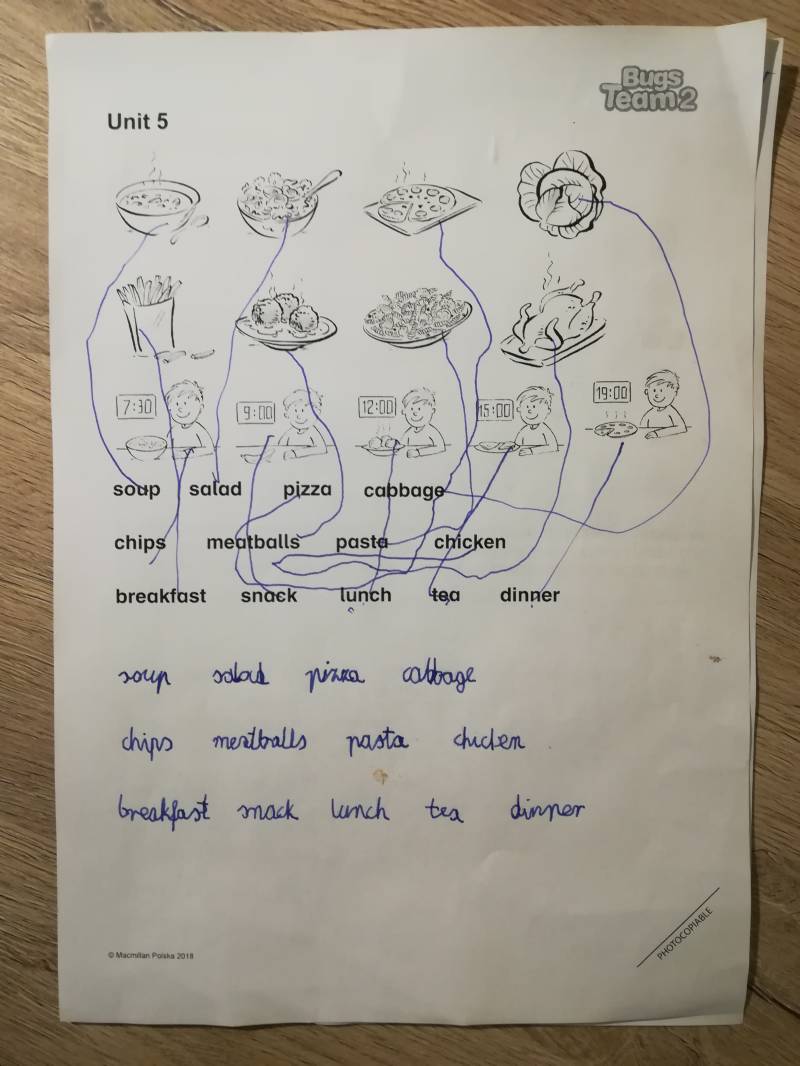 Bugs
Team 2
Unit 5
7:30 9:00 12:00 15:00 19:00
soup salad pizza cabbage
chips meatballs pasta chicken
breakfast snack lunch tea dinner
soup salad pizza cabbage
chips meatballs pasta chicken
breakfast snack lunch tea dinner
© Macmillan Polska 2018
PHOTOCOPIABLE